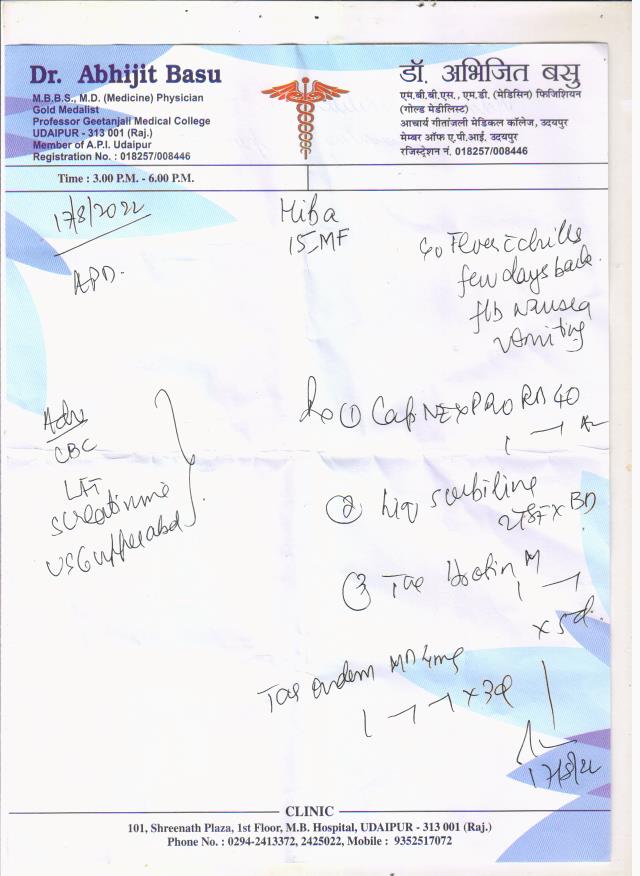 Dr. Abhijit Basu
M.B.B.S., M.D. (Medicine) Physician
Gold Medalist
Professor Geetanjali Medical College
UDAIPUR - 313 001 (Raj.)
Member of A.P.I. Udaipur
Registration No. : 018257/008446
डॉ. अभिजित बसु
एम.बी.बी.एस., एम.डी. (मेडिसिन) फिजिशियन
(गोल्ड मेडीलिस्ट)
आचार्य गीतांजली मेडिकल कॉलेज, उदयपुर
मेम्बर ऑफ ए.पी.आई. उदयपुर
रजिस्ट्रेशन नं. 018257/008446
Time : 3.00 P.M. - 6.00 P.M.
17/8/2022
Hiba
APD.
Fever c chills
few days back.
nausea
vomiting
Adv
CBC
LFT
S creatinine
USG upper abd
① Cap NEXPRO RD 40
1
② liq
2TSF x BD
③ Tab M
1
x 5d.
Tab ondem MD 4mg
1 x 3d
17/8/22
CLINIC
101, Shreenath Plaza, 1st Floor, M.B. Hospital, UDAIPUR - 313 001 (Raj.)
Phone No. : 0294-2413372, 2425022, Mobile : 9352517072